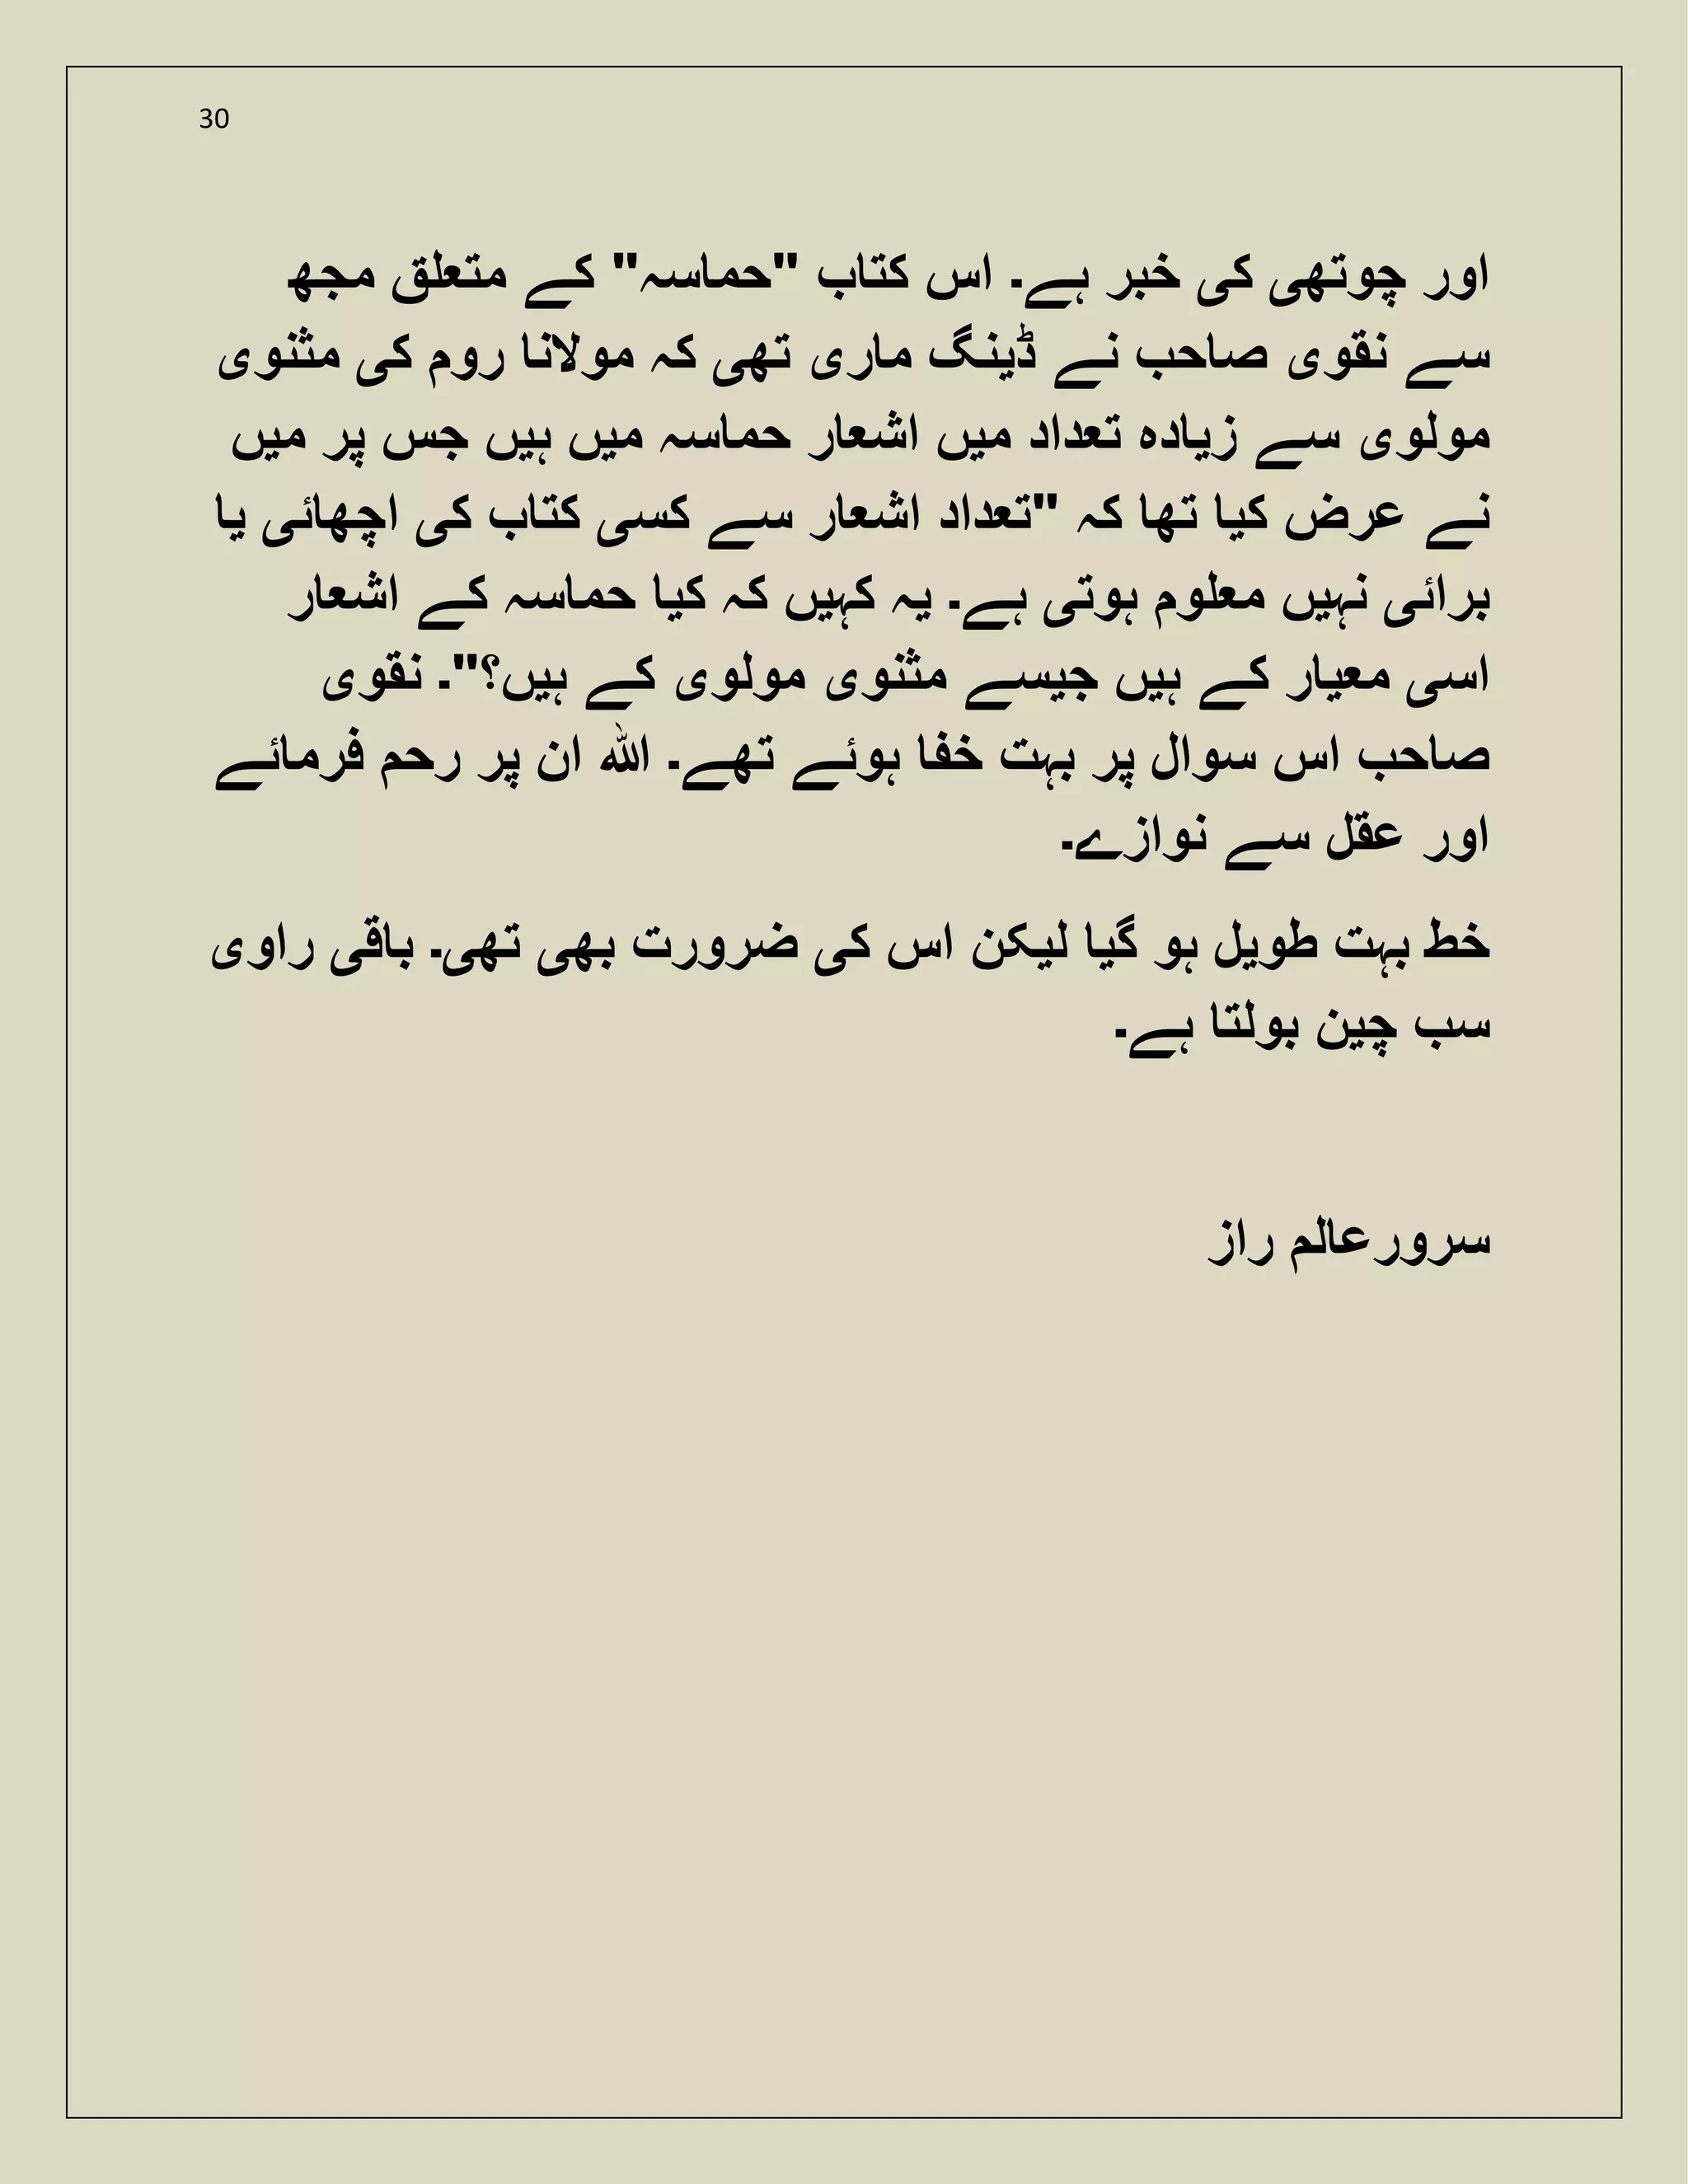 30
اور چوتھی کی خبر ہے۔ اس کتاب "حماسہ" کے متعلق مجھ
سے نقوی صاحب نے ڈینگ ماری تھی کہ مولانا روم کی مثنوی
مولوی سے زیادہ تعداد میں اشعار حماسہ میں ہیں جس پر میں
نے عرض کیا تھا کہ "تعداد اشعار سے کسی کتاب کی اچھائی یا
برائی نہیں معلوم ہوتی ہے۔ یہ کہیں کہ کیا حماسہ کے اشعار
اسی معیار کے ہیں جیسے مثنوی مولوی کے ہیں؟"۔ نقوی
صاحب اس سوال پر بہت خفا ہوئے تھے۔ الله ان پر رحم فرمائے
اور عقل سے نوازے۔
خط بہت طویل ہو گیا لیکن اس کی ضرورت بھی تھی۔ باقی راوی
سب چین بولتا ہے۔
سرورعالم راز